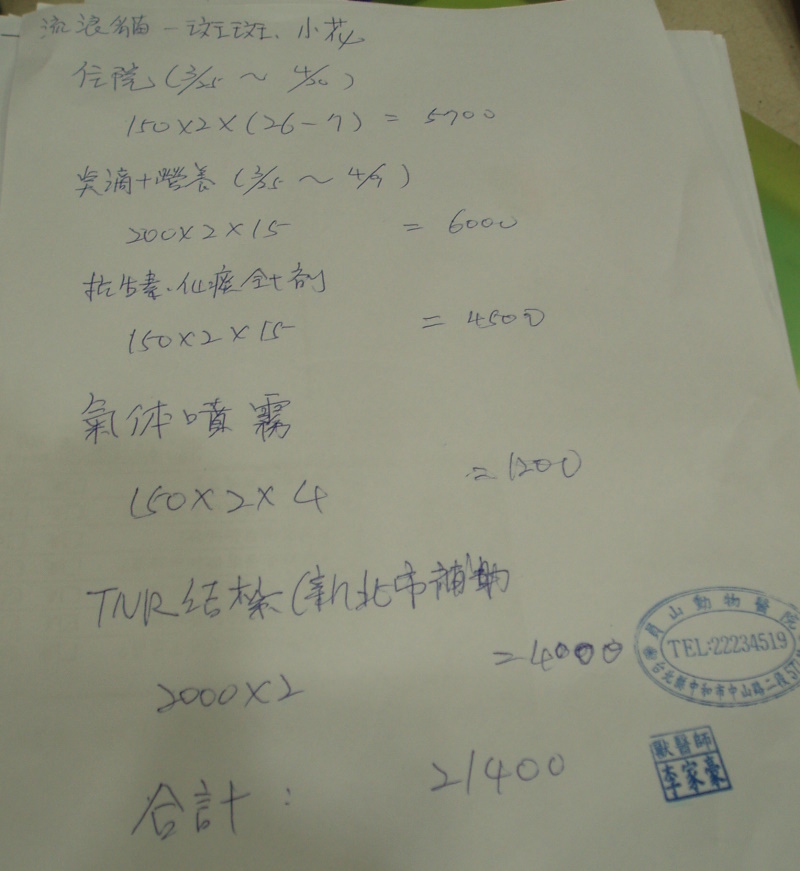 流浪貓－斑斑、小花
住院(3/25 ～ 4/20)
150×2×(26-7) = 5700
點滴+營養(3/25 ～ 4/9)
200×2×15 = 6000
抗生素、化痰針剂
150×2×15 = 4500
氣体噴霧
150×2×4 = 1200
TNR結紮(新北市補助
2000×2 = 4000
合計： 21400
員山動物醫院
TEL:22234519
台北縣中和市中山路二段
獸醫師
李家豪